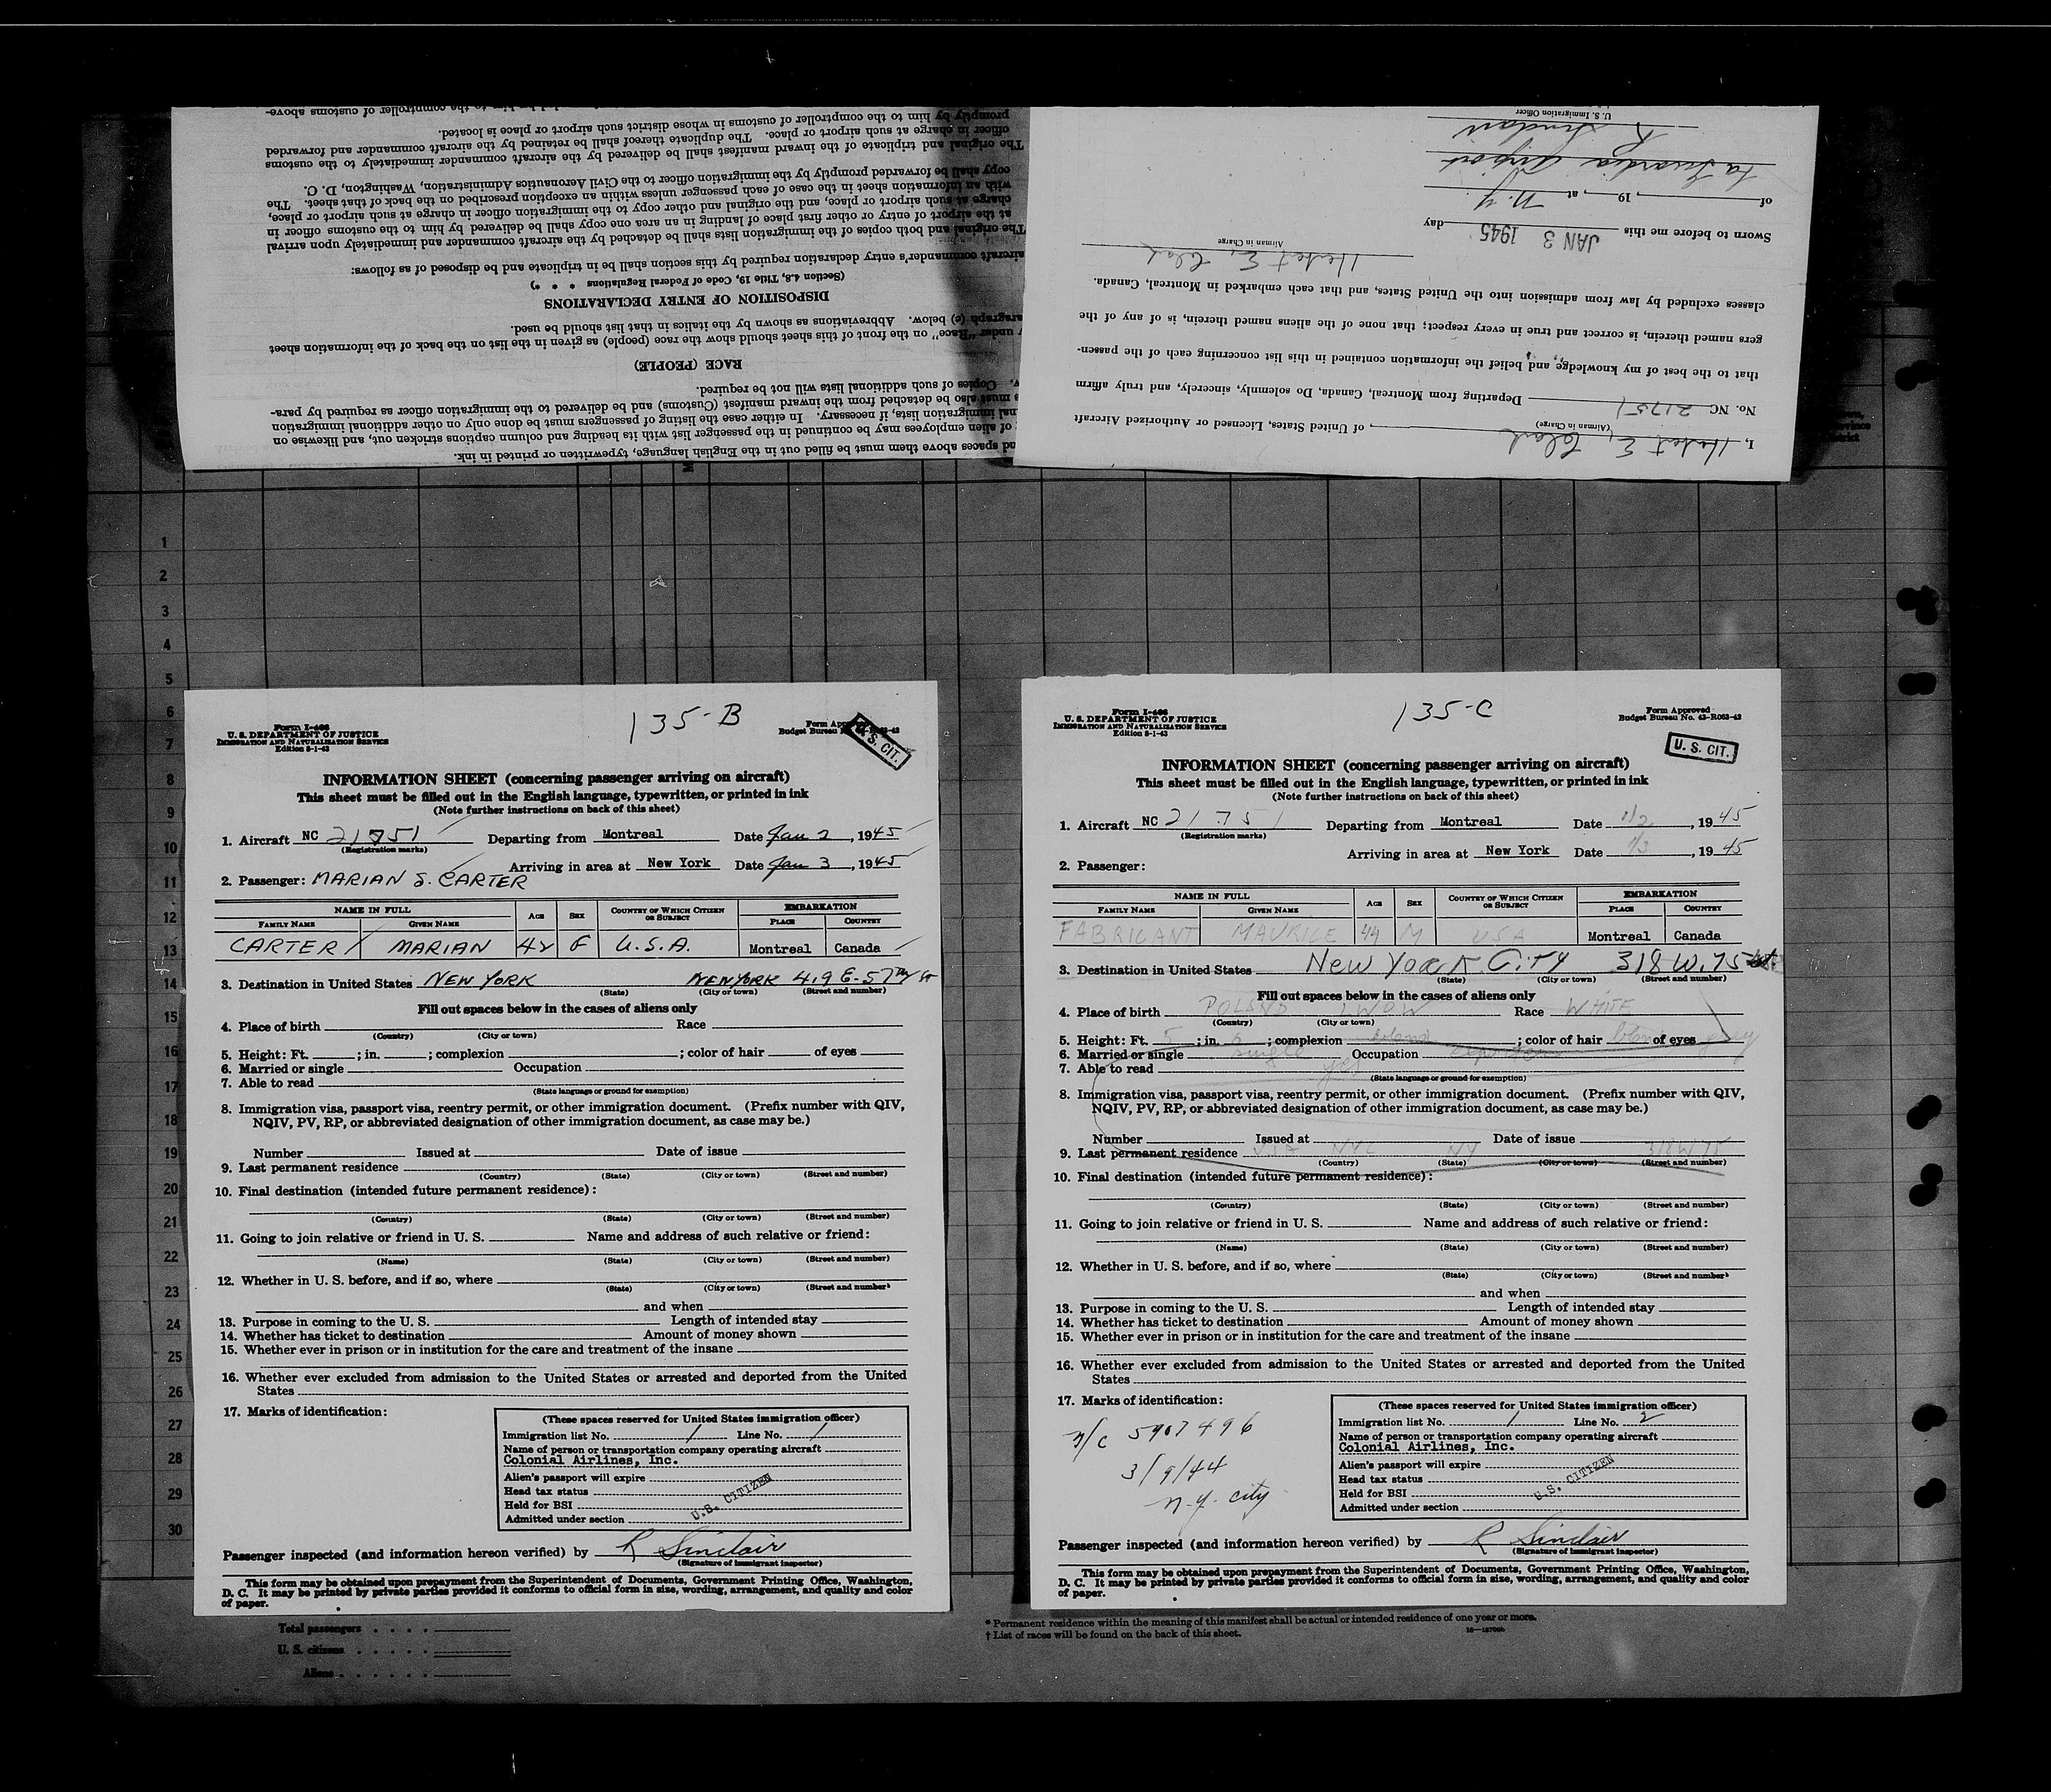 and spaces above them must be filled out in the English language, typewritten or printed in ink.
of alien employees may be continued in the passenger list with its heading and column captions stricken out, and likewise on
nal immigration lists, if necessary. In either case the listing of passengers must be done only on other additional immigration
s must also be detached from the inward manifest (Customs) and be delivered to the immigration officer as required by para-
y. Copies of such additional lists will not be required.
RACE (PEOPLE)
y under "Race" on the front of this sheet should show the race (people) as given in the list on the back of the information sheet
aragraph (c) below. Abbreviations as shown by the italics in that list should be used.
DISPOSITION OF ENTRY DECLARATIONS
(Section 4.8, Title 19, Code of Federal Regulations * * *)
aircraft commander's entry declaration required by this section shall be in triplicate and be disposed of as follows:
The original and both copies of the immigration lists shall be detached by the aircraft commander and immediately upon arrival
at the airport of entry or other first place of landing in an area one copy shall be delivered by him to the customs officer in
charge at such airport or place, and the original and other copy to the immigration officer in charge at such airport or place,
with an information sheet in the case of each passenger unless within an exception prescribed on the back of that sheet. The
copy shall be forwarded promptly by the immigration officer to the Civil Aeronautics Administration, Washington, D. C.
The original and triplicate of the inward manifest shall be delivered by the aircraft commander immediately to the customs
officer in charge at such airport or place. The duplicate thereof shall be retained by the aircraft commander and forwarded
promptly by him to the comptroller of customs in whose district such airport or place is located.
by him to the comptroller of customs above-
I, Herbert E. Clark, of United States, Licensed or Authorized Aircraft
(Airman in Charge)
No. NC 21751 Departing from Montreal, Canada, Do solemnly, sincerely, and truly affirm
that to the best of my knowledge, and belief the information contained in this list concerning each of the passen-
gers named therein, is correct and true in every respect; that none of the aliens named therein, is of any of the
classes excluded by law from admission into the United States, and that each embarked in Montreal, Canada.
Herbert E. Clark
Airman in Charge
Sworn to before me this JAN 3 1945 day
of , 19 , at N.Y.
La Guardia Airport
R Sinclair
U. S. Immigration Officer
1
2
3
4
5
6
7
8
9
10
11
12
13
14
15
16
17
18
19
20
21
22
23
24
25
26
27
28
29
30
135-B
Form I-466
U. S. DEPARTMENT OF JUSTICE
IMMIGRATION AND NATURALIZATION SERVICE
Edition 8-1-43
Form
Budget Bureau
U. S. CIT.
INFORMATION SHEET (concerning passenger arriving on aircraft)
This sheet must be filled out in the English language, typewritten, or printed in ink
(Note further instructions on back of this sheet)
1. Aircraft NC 21751 Departing from Montreal Date Jan 2, 1945
(Registration marks)
Arriving in area at New York Date Jan 3, 1945
2. Passenger: MARIAN S. CARTER
NAME IN FULL AGE SEX COUNTRY OF WHICH CITIZEN OR SUBJECT EMBARKATION
FAMILY NAME GIVEN NAME PLACE COUNTRY
CARTER MARIAN 42 F U.S.A. Montreal Canada
3. Destination in United States NEW YORK NEW YORK 419 E-57TH ST
(State) (City or town) (Street and number)
Fill out spaces below in the cases of aliens only
4. Place of birth Race
(Country) (City or town)
5. Height: Ft. ; in. ; complexion ; color of hair of eyes
6. Married or single Occupation
7. Able to read
(State language or ground for exemption)
8. Immigration visa, passport visa, reentry permit, or other immigration document. (Prefix number with QIV,
NQIV, PV, RP, or abbreviated designation of other immigration document, as case may be.)
Number Issued at Date of issue
9. Last permanent residence
(Country) (State) (City or town) (Street and number)
10. Final destination (intended future permanent residence):
(Country) (State) (City or town) (Street and number)
11. Going to join relative or friend in U. S. Name and address of such relative or friend:
(Name) (State) (City or town) (Street and number)
12. Whether in U. S. before, and if so, where
(State) (City or town) (Street and number)
and when
13. Purpose in coming to the U. S. Length of intended stay
14. Whether has ticket to destination Amount of money shown
15. Whether ever in prison or in institution for the care and treatment of the insane
16. Whether ever excluded from admission to the United States or arrested and deported from the United
States
17. Marks of identification:
(These spaces reserved for United States immigration officer)
Immigration list No. 1 Line No. 1
Name of person or transportation company operating aircraft
Colonial Airlines, Inc.
Alien's passport will expire
Head tax status
Held for BSI
Admitted under section
U.S. CITIZEN
Passenger inspected (and information hereon verified) by R Sinclair
(Signature of immigrant inspector)
This form may be obtained upon prepayment from the Superintendent of Documents, Government Printing Office, Washington,
D. C. It may be printed by private parties provided it conforms to official form in size, wording, arrangement, and quality and color
of paper.
135-C
Form I-466
U. S. DEPARTMENT OF JUSTICE
IMMIGRATION AND NATURALIZATION SERVICE
Edition 8-1-43
Form Approved
Budget Bureau No. 43-R063-42
U. S. CIT.
INFORMATION SHEET (concerning passenger arriving on aircraft)
This sheet must be filled out in the English language, typewritten, or printed in ink
(Note further instructions on back of this sheet)
1. Aircraft NC 21751 Departing from Montreal Date 1/2, 1945
(Registration marks)
Arriving in area at New York Date 1/3, 1945
2. Passenger:
NAME IN FULL AGE SEX COUNTRY OF WHICH CITIZEN OR SUBJECT EMBARKATION
FAMILY NAME GIVEN NAME PLACE COUNTRY
FABRICANT MAURICE 44 M USA Montreal Canada
3. Destination in United States New York City 318 W. 75 st
(State) (City or town) (Street and number)
Fill out spaces below in the cases of aliens only
4. Place of birth POLAND LWOW Race WHITE
(Country) (City or town)
5. Height: Ft. 5; in. 6; complexion blond; color of hair blond of eyes grey
6. Married or single single Occupation
7. Able to read yes
(State language or ground for exemption)
8. Immigration visa, passport visa, reentry permit, or other immigration document. (Prefix number with QIV,
NQIV, PV, RP, or abbreviated designation of other immigration document, as case may be.)
Number Issued at Date of issue
9. Last permanent residence USA NYC NY 318 W 75
(Country) (State) (City or town) (Street and number)
10. Final destination (intended future permanent residence):
(Country) (State) (City or town) (Street and number)
11. Going to join relative or friend in U. S. Name and address of such relative or friend:
(Name) (State) (City or town) (Street and number)
12. Whether in U. S. before, and if so, where
(State) (City or town) (Street and number)
and when
13. Purpose in coming to the U. S. Length of intended stay
14. Whether has ticket to destination Amount of money shown
15. Whether ever in prison or in institution for the care and treatment of the insane
16. Whether ever excluded from admission to the United States or arrested and deported from the United
States
17. Marks of identification:
N/C 5907496
3/9/44
N.Y. City
(These spaces reserved for United States immigration officer)
Immigration list No. 1 Line No. 2
Name of person or transportation company operating aircraft
Colonial Airlines, Inc.
Alien's passport will expire
Head tax status
Held for BSI
Admitted under section
U.S. CITIZEN
Passenger inspected (and information hereon verified) by R Sinclair
(Signature of immigrant inspector)
This form may be obtained upon prepayment from the Superintendent of Documents, Government Printing Office, Washington,
D. C. It may be printed by private parties provided it conforms to official form in size, wording, arrangement, and quality and color
of paper.
Total passengers
U. S. citizens
Aliens
* Permanent residence within the meaning of this manifest shall be actual or intended residence of one year or more.
† List of races will be found on the back of this sheet.